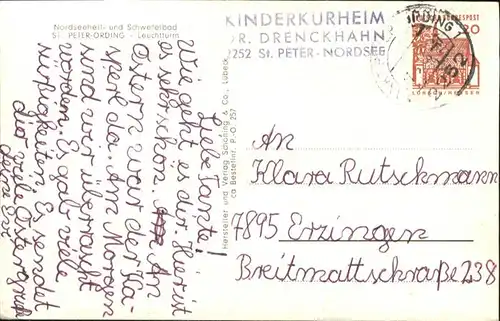 Nordseeheil- und Schwefelbad
St. PETER-ORDING - Leuchtturm
KINDERKURHEIM
DR. DRENCKHAHN
2252 St. PETER-NORDSEE
ORDING 1
DEUTSCHE BUNDESPOST
20
LORSCH/HESSEN
Liebe Tante!
Wie geht es dir. Hier ist
es sehr schön. An
Ostern war der Ka-
sperl da. Am Morgen
sind wir überrascht
worden. Es gab viele
Süßigkeiten. Es sendet
dir viele Ostergrüße
deine
Hersteller und Verlag Schöning & Co., Lübeck
ca Bestellnr. P.O. 257
An
Klara Rutschmann
7895 Erzingen
Breitmattschraße 238